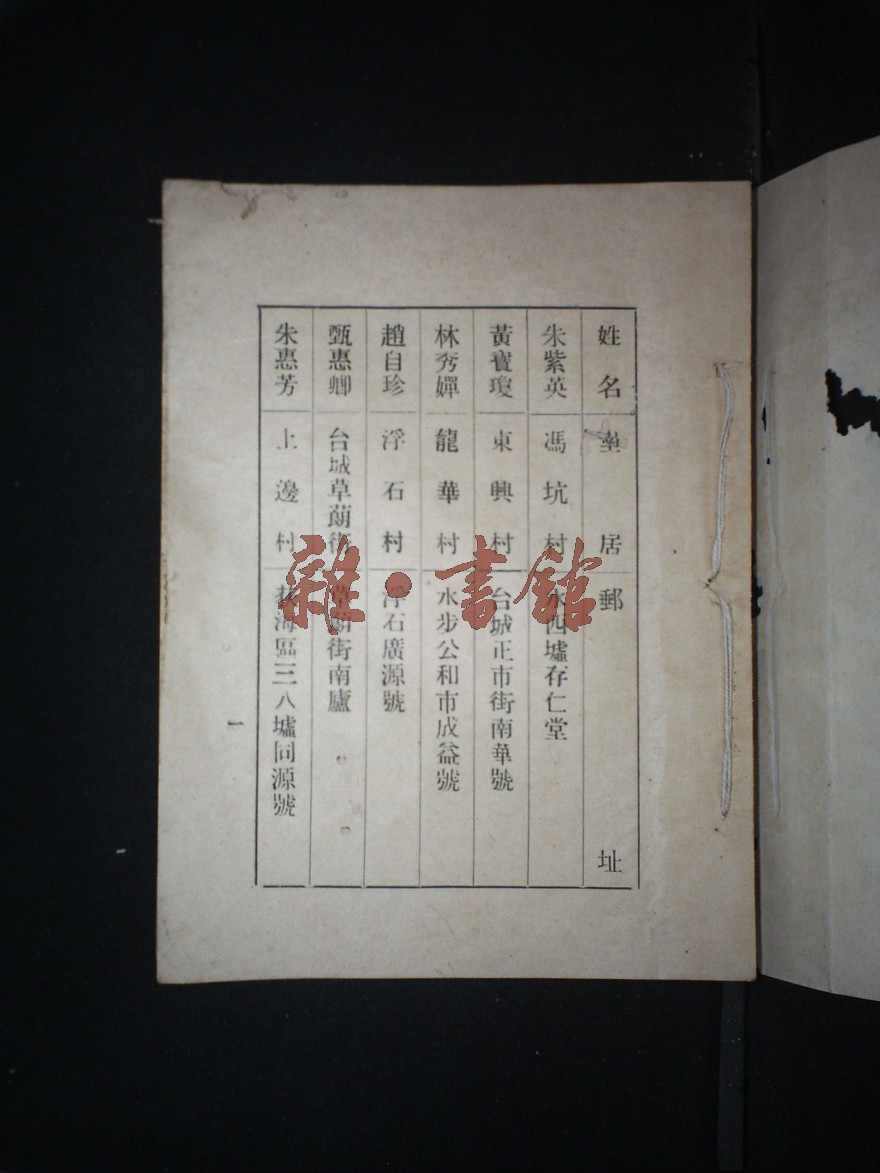 姓名 居 郵址
朱紫英 馮坑村 水西墟存仁堂
黃寶瓊 東興村 台城正市街南華號
林秀嬋 龍華村 水步公和市成益號
趙自珍 浮石村 浮石廣源號
甄惠卿 台城草蓢街 草蓢街南廬
朱惠芳 上邊村 海區三八墟同源號
一
雜·書館